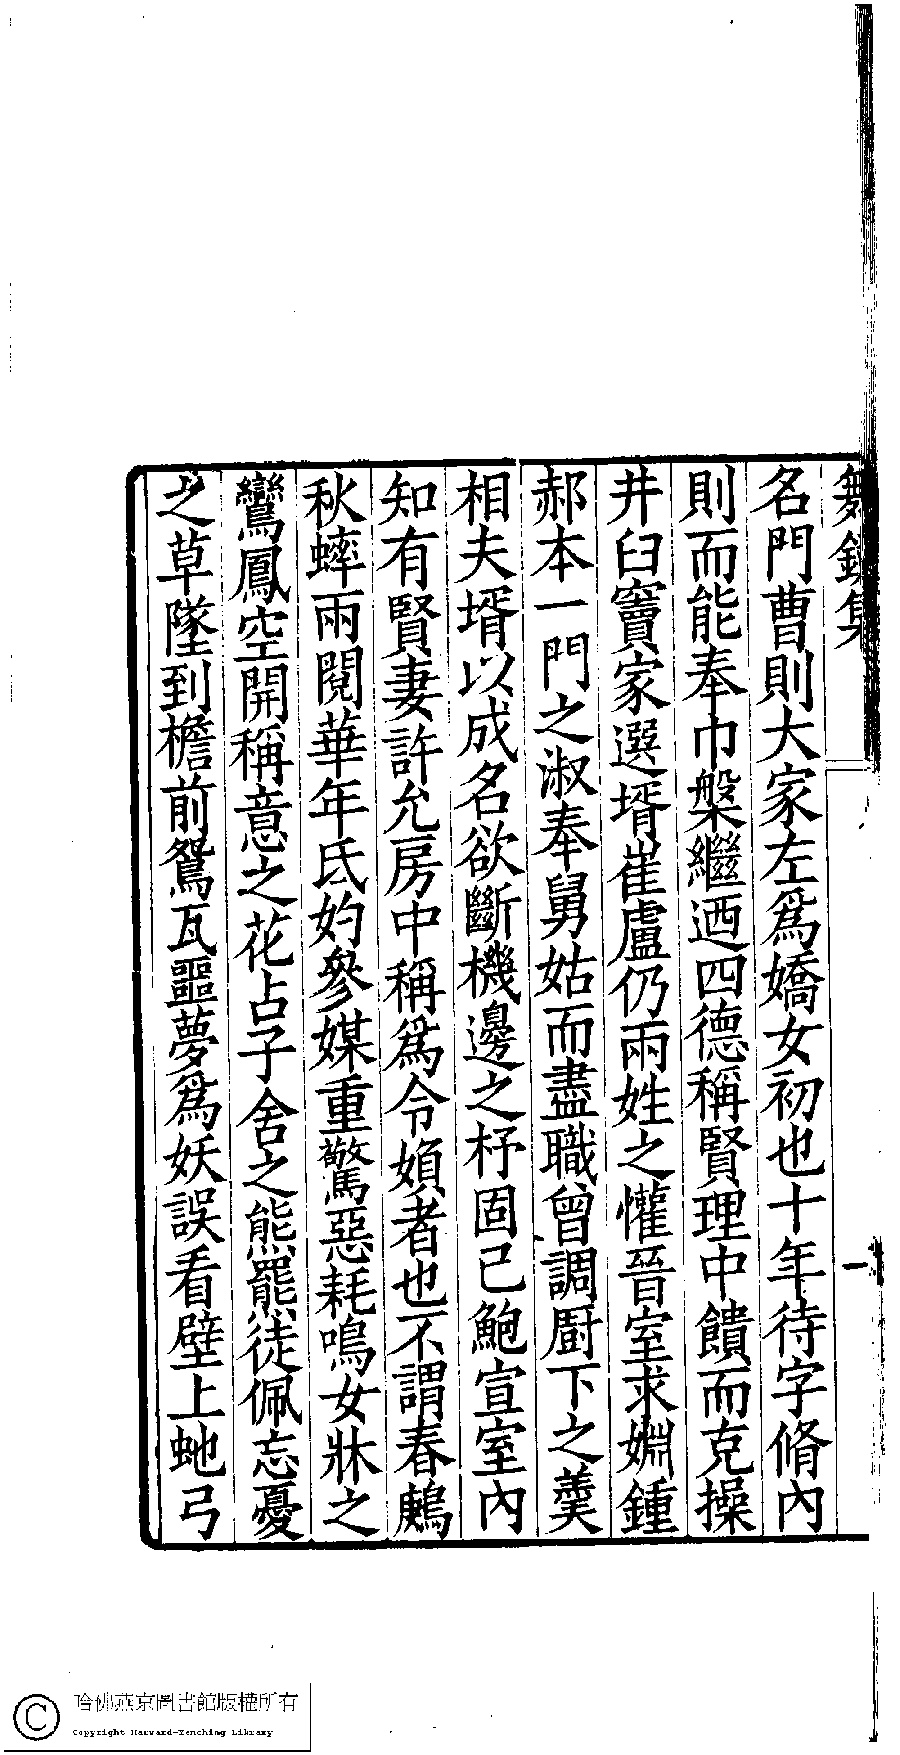 名門曹則大家左爲嬌女初也十年待字脩內
則而能奉巾槃繼迺四德稱賢理中饋而克操
井臼竇家選壻崔盧仍兩姓之懽晉室求婣鍾
郝本一門之淑奉舅姑而盡職曾調厨下之羹
相夫壻以成名欲斷機邊之杼固已鮑宣室內
知有賢妻許允房中稱爲令嬪者也不謂春鶊
秋蟀兩閱華年氐妁參媒重驚惡耗鳴女牀之
鸞鳳空開稱意之花占子舍之熊羆徒佩忘憂
之草墜到檐前鴛瓦噩夢爲妖誤看壁上虵弓
一
哈佛燕京圖書館版權所有
Copyright Harvard-Yenching Library